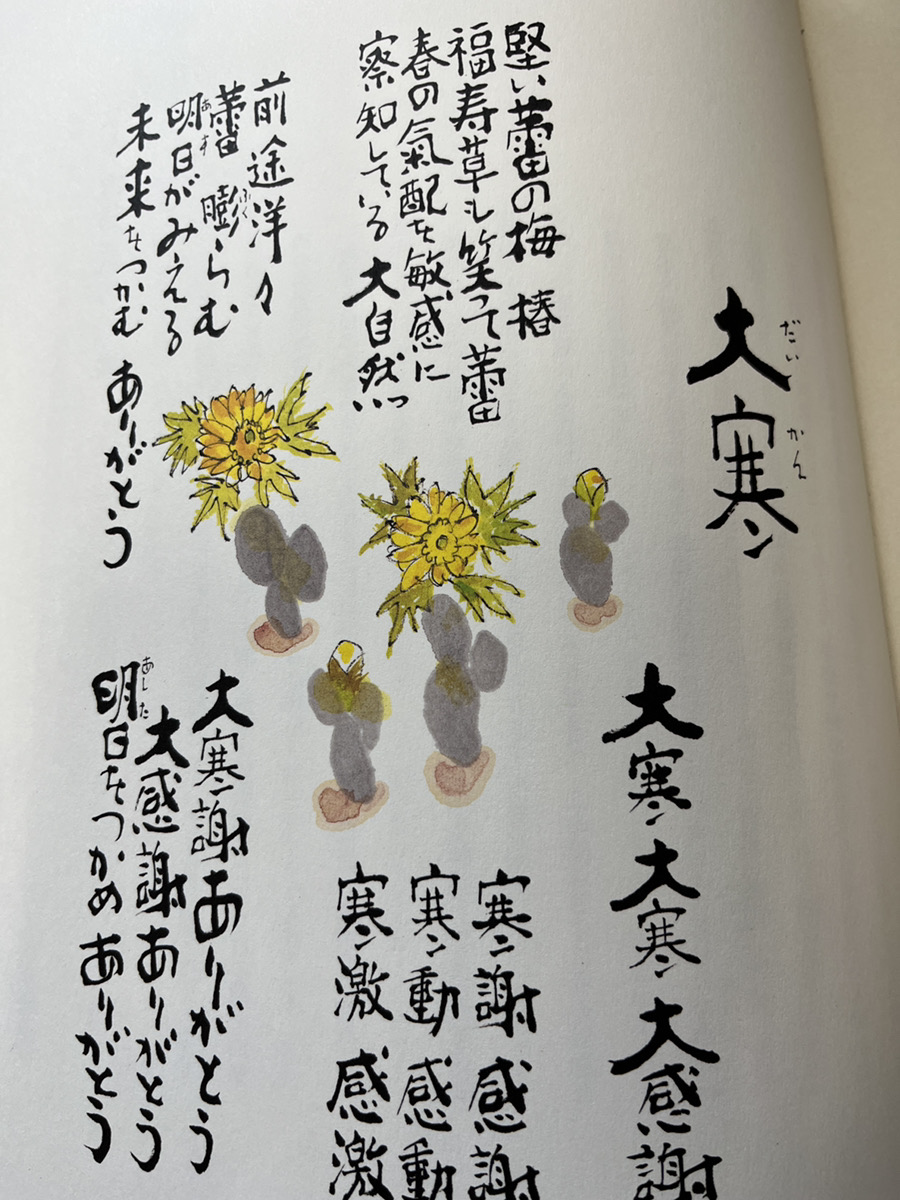 大寒
だいかん
堅い蕾の梅 椿
福寿草も笑って蕾
春の氣配を敏感に
察知している大自然
前途洋々
蕾 膨らむ
ふく
明日がみえる
あす
未来をつかむ ありがとう
大寒大寒大感謝
寒謝感謝
寒動感動
寒激感激
大寒謝ありがとう
大感謝ありがとう
明日をつかめありがとう
あした